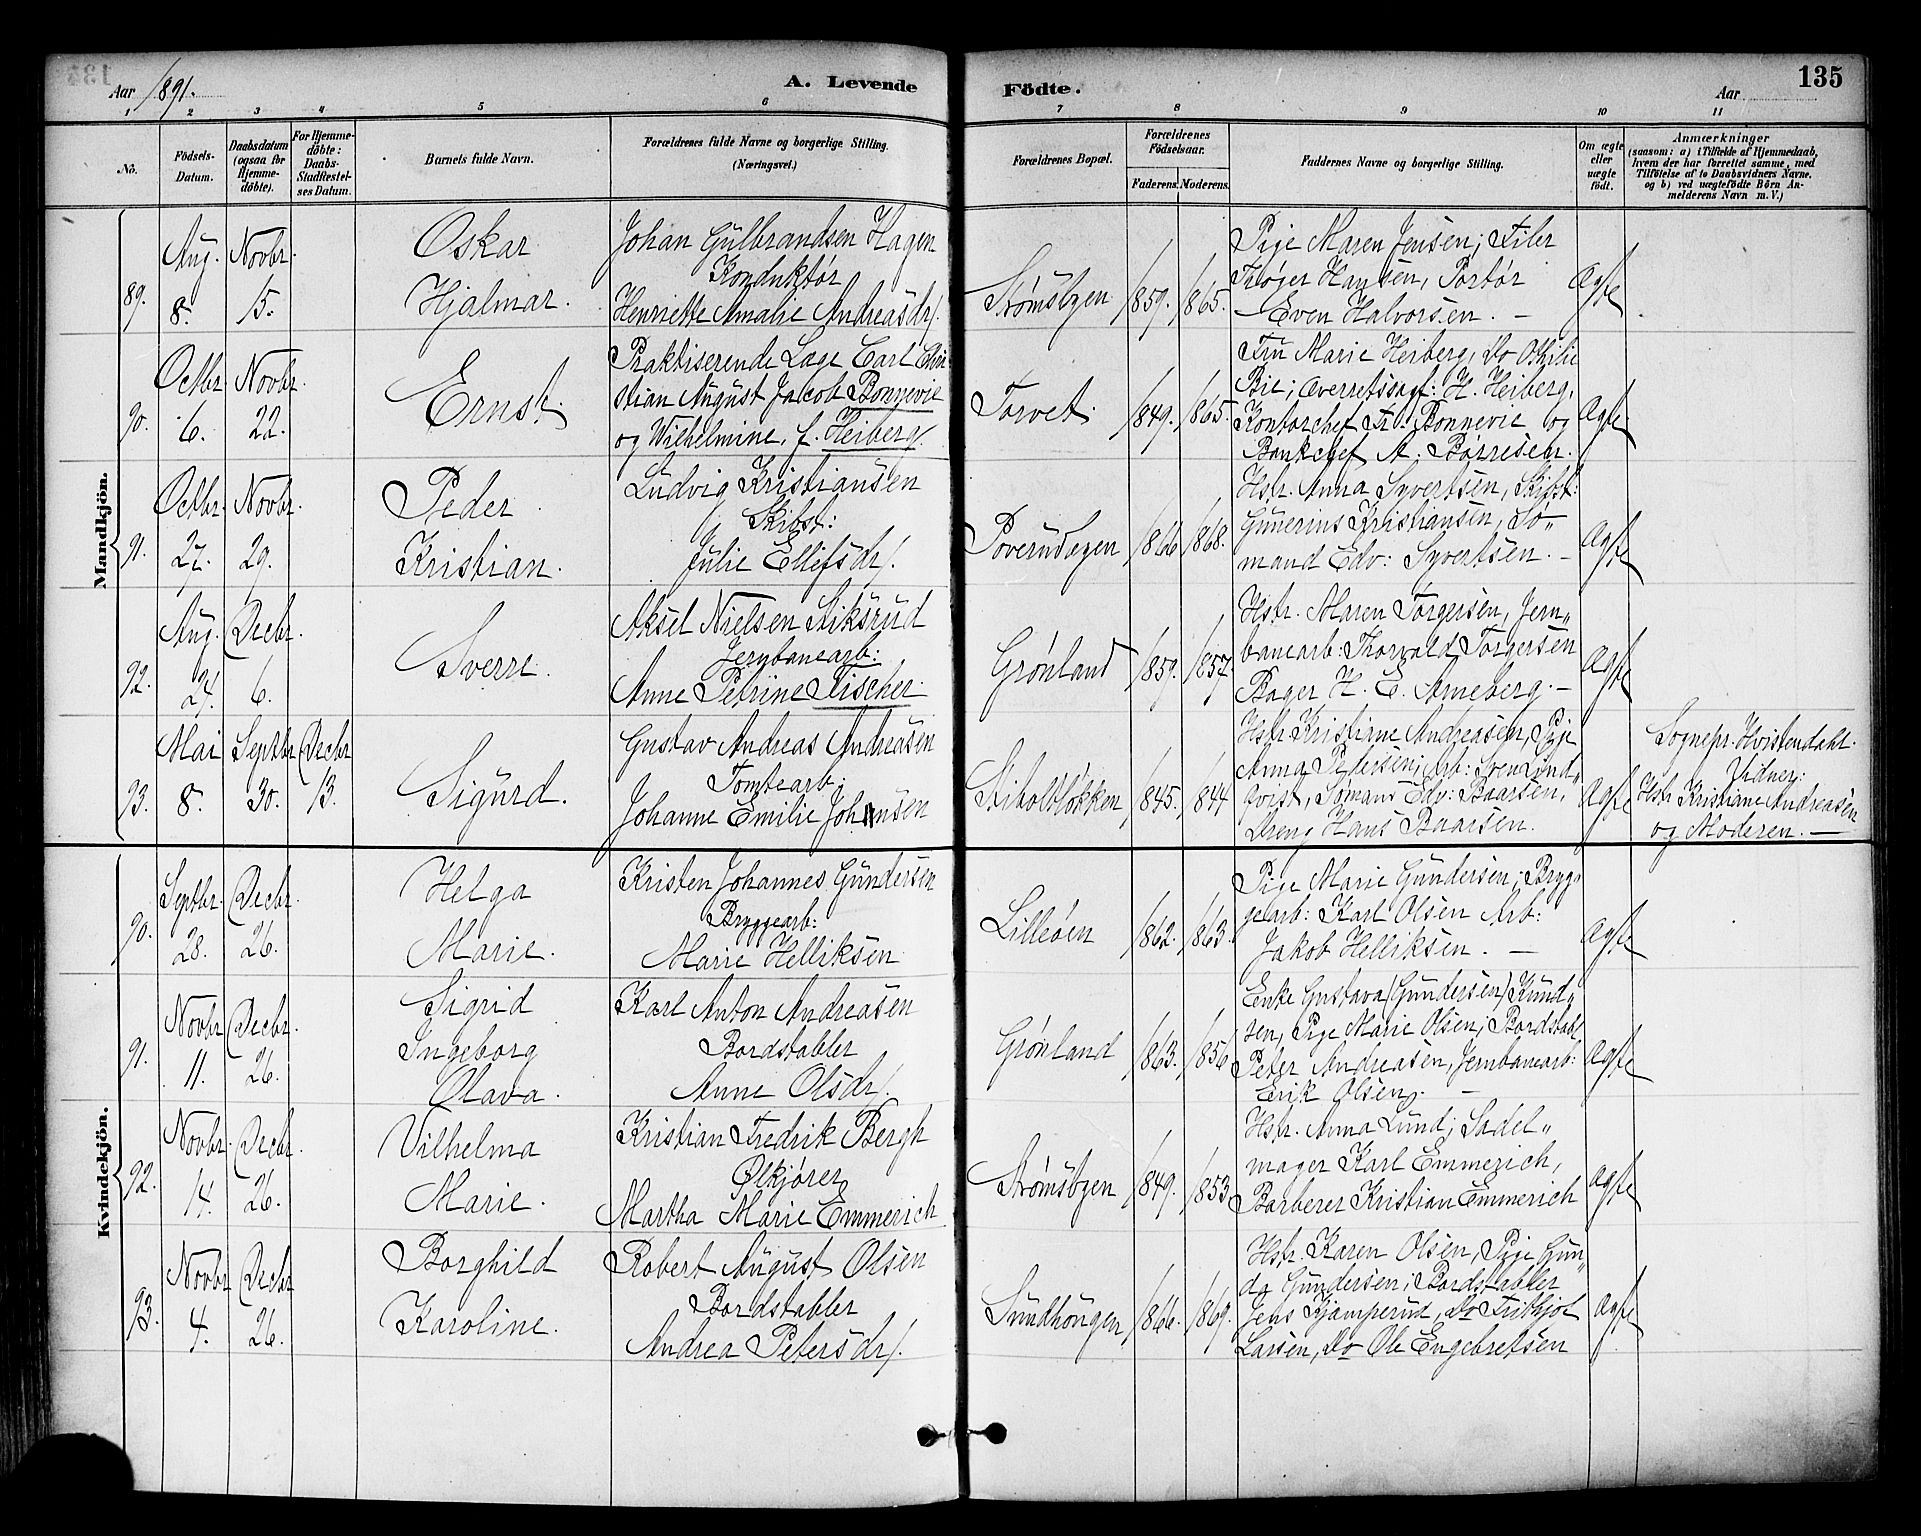 Aar 1891.
A. Levende Födte.
135
Aar
1 2 3 4 5 6 7 8 9 10 11
No.
Födsels-Datum.
Daabsdatum (ogsaa for Hjemme-döbte).
For Hjemme-döbte: Daabs-Stadfæstelses Datum.
Barnets fulde Navn.
Forældrenes fulde Navne og borgerlige Stilling. (Næringsvei.)
Forældrenes Bopæl.
Forældrenes Födselsaar.
Faderens. Moderens.
Faddernes Navne og borgerlige Stilling.
Om ægte eller uægte födt.
Anmærkninger
(saasom: a) i Tilfælde af Hjemmedaab,
hvem der har forrettet samme, med
Tilföielse af to Daabsvidners Navne,
og b) ved uægtefödte Börn An-
melderens Navn m. V.)
Mandkjön.
89.
Aug. 8.
Novbr. 15.
Oskar
Hjalmar.
Johan Gulbrandsen Hagen
Konduktør
Henriette Amalie Andreasdr/.
Strømsbyen
1859. 1865.
Pige Maren Jensen; Filer
Trøger Hansen, Portør
Even Halvorsen. —
Ægte
90.
Octbr. 6.
Novbr. 22.
Ernst.
Praktiserende Læge Carl Chri
stian August Jacob Bonnevie
og Wilhelmine, f. Heiberg/.
Torvet.
1849. 1865.
Fru Marie Heiberg, do Othilie
Bie; Overretssagf: H. Heiberg,
Kontorchef Fr. Bonnevie og
Bankchef A. Børresen.
Ægte
91.
Octbr. 27.
Novbr. 29.
Peder
Kristian.
Ludvig Kristiansen
Skibst:
Julie Ellefsdr/.
Poverudbyen
1866 1868.
Hstr. Anna Syvertsen, Skibst:
Gunerius Kristiansen, Sø-
mand Edv: Syvertsen. —
Ægte
92.
Aug. 24.
Decbr. 6.
Sverre.
Aksel Nielsen Siksrud
Jernbanearb:
Anne Petrine Fischer.
Grønland
1859. 1857.
Hstr. Maren Torgersen, Jern-
banearb: Thorvald Torgersen
Bager H. E. Arneberg. —
Ægte
93.
Mai 8.
Septbr 30.
Decbr 13.
Sigurd.
Gustav Andreas Andreasen
Tomtearb:
Johanne Emilie Johnsen
Stiboltløkken
1845. 1844
Hstr Kristiane Andreasen, Pige
Anna Pedersen; Arb: Sven Lund-
qvist, Sømand Edv: Baarsen,
Dreng Hans Baarsen.
Ægte
Sognepr. Hvistendahl.
Vidner:
Hstr Kristiane Andreasen
og Moderen. —
Kvindekjön.
90.
Septbr. 28.
Decbr. 26.
Helga
Marie.
Kristen Johannes Gundersen
Bryggearb:
Marie Helliksen
Lilleøen
1862. 1863.
Pige Marie Gundersen; Bryg-
gearb: Karl Olsen Arb:
Jakob Helliksen. —
Ægte
91.
Novbr 11.
Decbr. 26.
Sigrid
Ingeborg
Olava.
Karl Anton Andreasen
Bordstabler
Anne Olsdr/.
Grønland
1863. 1856
Enke Gustava (Gundersen) Knud-
sen, Pige Marie Olsen; Bordstabl
Peter Andreasen, Jernbanearb:
Erik Olsen. —
Ægte
92.
Novbr. 14.
Decbr. 26.
Vilhelma
Marie.
Kristian Fredrik Bergh
Ølkjører
Martha Marie Emmerich
Strømsbyen
1849. 1853
Hstr. Anna Lund; Sadel-
mager Karl Emmerich,
Barberer Kristian Emmerich
Ægte
93.
Novbr 4.
Decbr 26.
Borghild
Karoline.
Robert August Olsen
Bordstabler
Andrea Petersdr/.
Sundhougen
1866. 1869.
Hstr. Karen Olsen, Pige Gun-
da Gundersen; Bordstabler
Jens Kjamperud, do Frithjof
Larsen, do Ole Engebretsen
Ægte